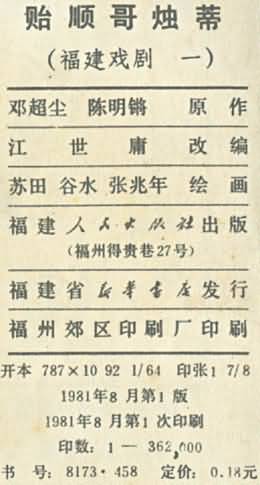 贻顺哥烛蒂
(福建戏剧 一)
邓超尘 陈明锵 原作
江世庸 改编
苏田 谷水 张兆年 绘画
福建人民出版社出版
(福州得贵巷27号)
福建省新华书店发行
福州郊区印刷厂印刷
开本 787×10 92 1/64 印张1 7/8
1981年8月第1版
1981年8月第1次印刷
印数：1—362,000
书号：8173·458 定价：0.18元